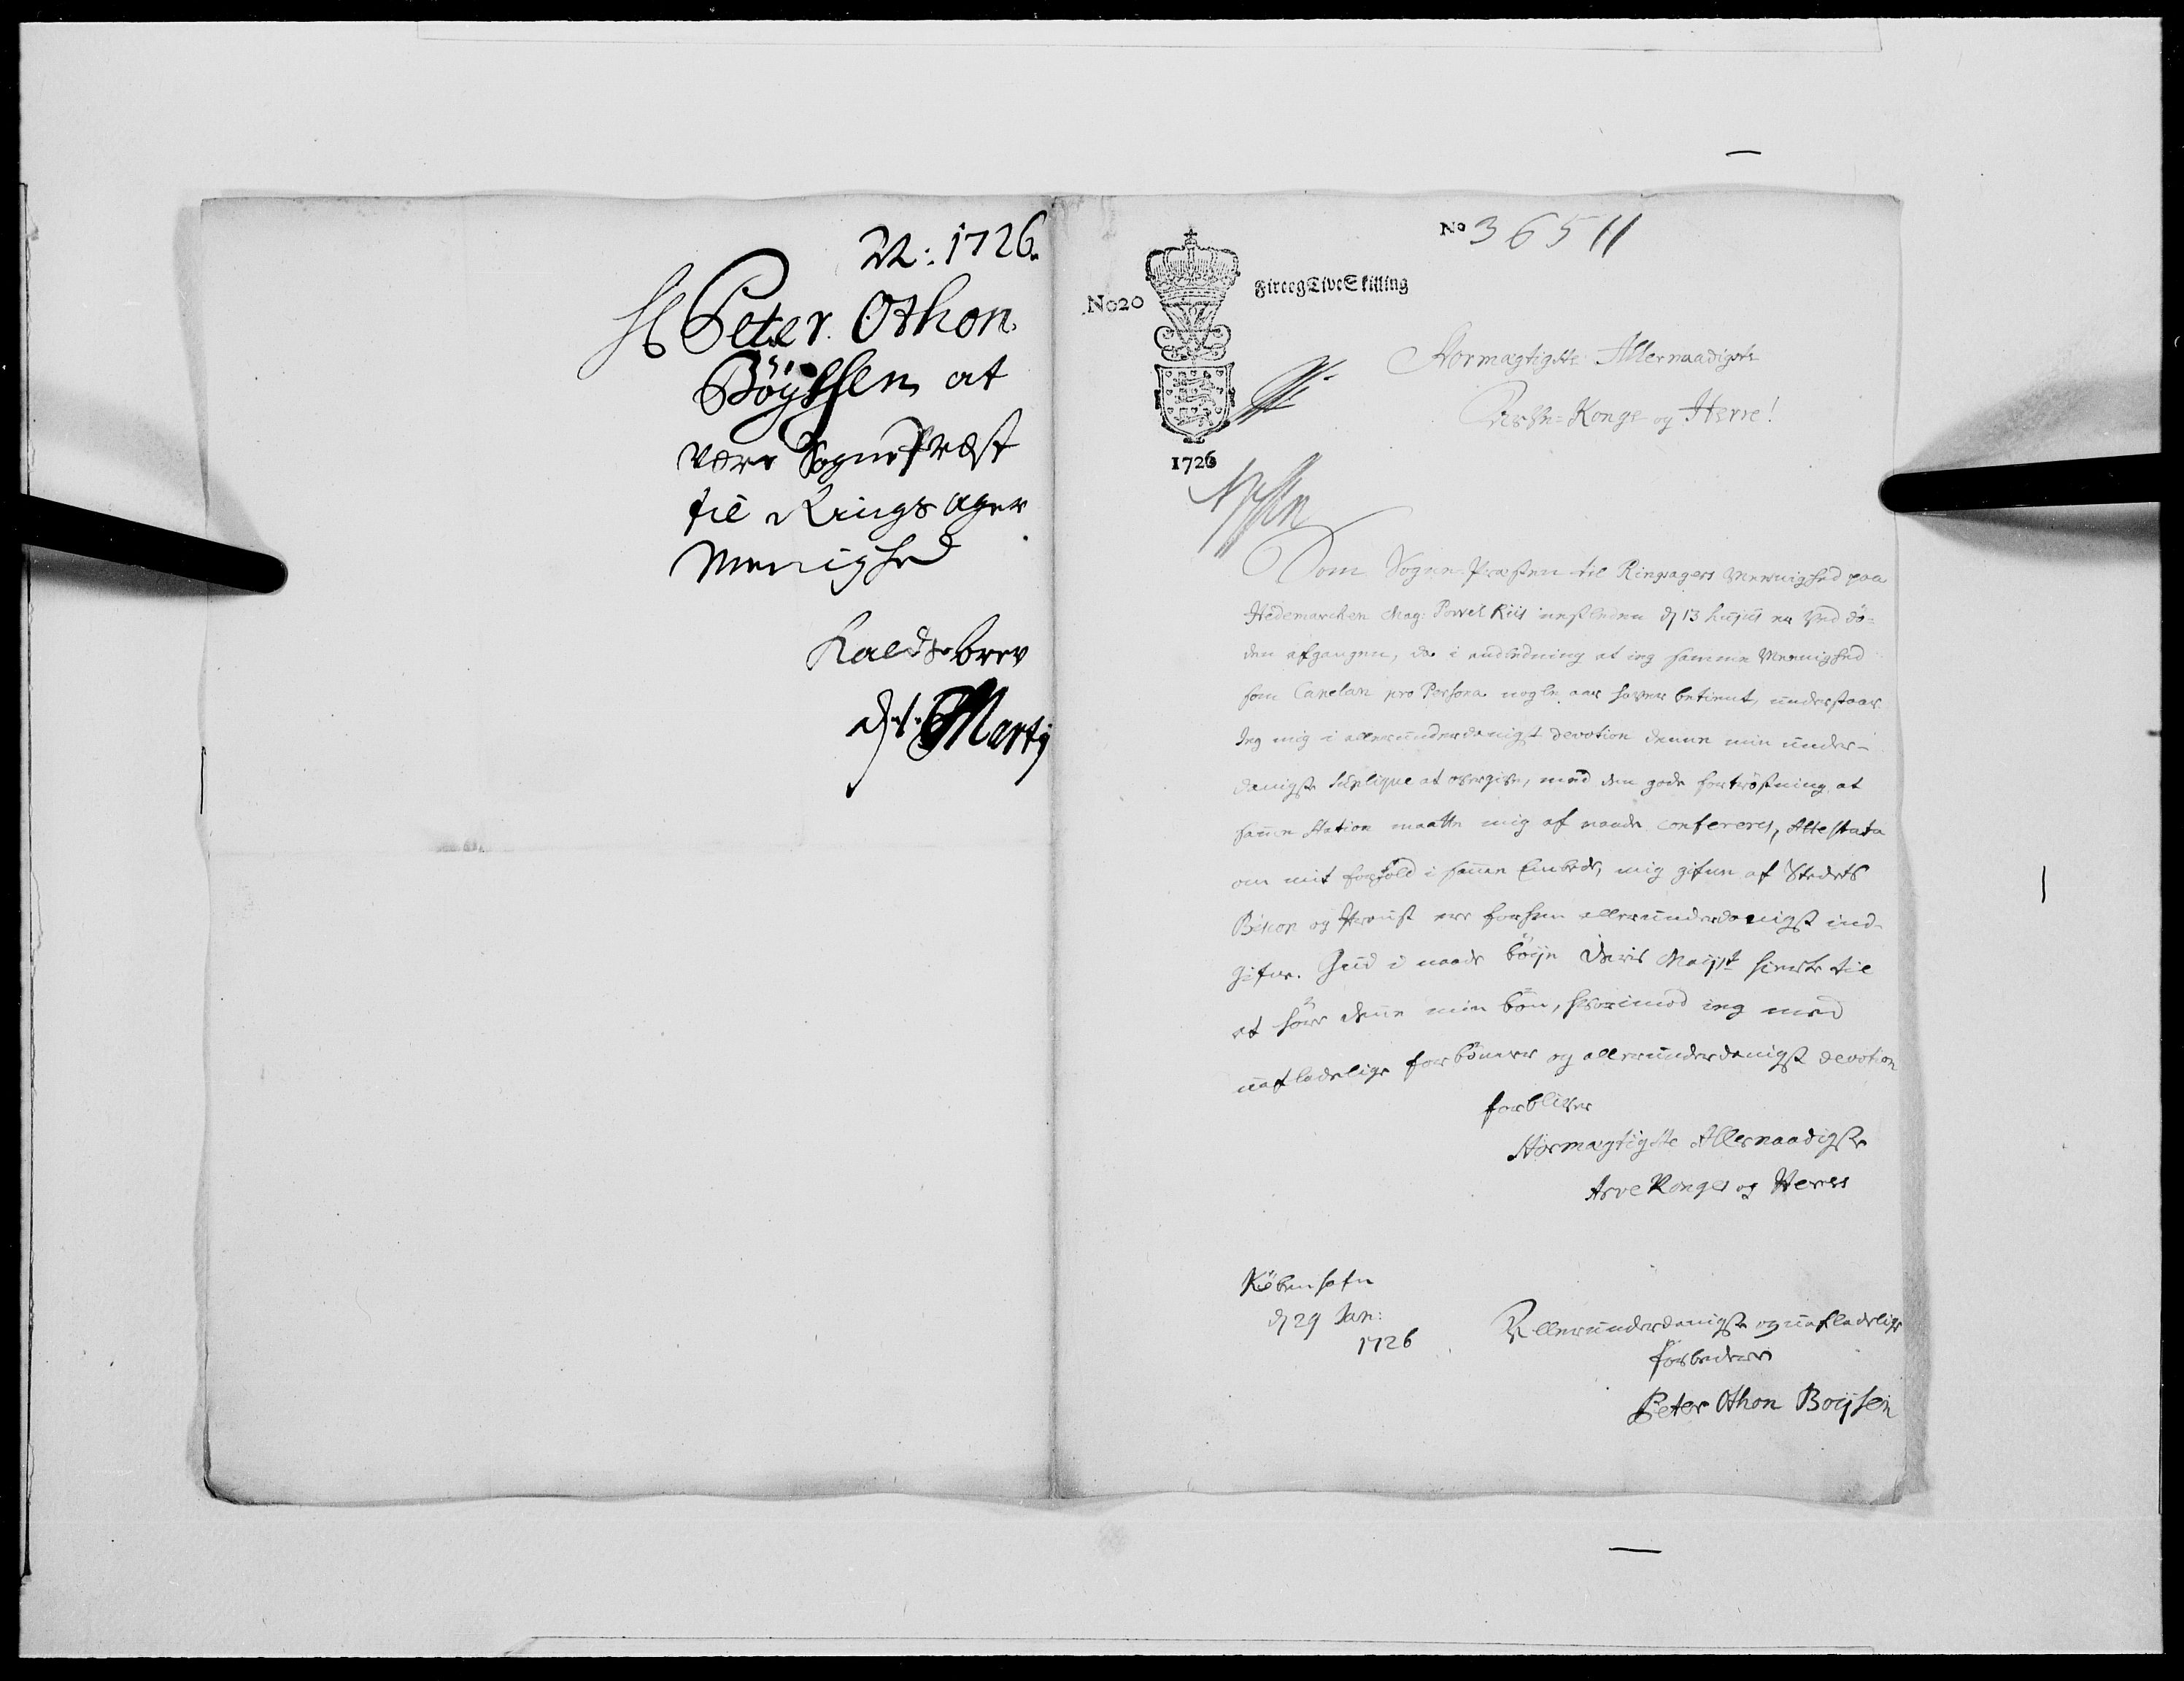 N: 1726.
H Peter Othon
Böÿssen at
være Sogne Præst
til Ringsager
Menighed
Kalds-brev
d. 1. Martij
No 36511
No20
FireogTiveSkilling
1726
Stormægtigste Allernaadigste
Arfve-Konge og Herre!
Som Sogne-Præsten til Ringsagers Meenighed paa
Hedemarchen Mag: Povel Riis nestleden d 13 hujus er ved dö-
den afgangen, da i andledning at ieg samme Meenighed
som Capelan pro Persona nogle aar haver betient, understaar
Jeg mig i allerunderdanigst devotion denne min under-
danigste Suplique at overgive, med den gode fortröstning at
samme Station maatte mig af naade confereres, Attestata
om mit forhold i samme Embede, mig gifven af Stedets
Biscop og Provst ere herhen allerunderdanigst ind-
gifven. Gud i naade böije Deris Maijst hierte til
at höre denne min bön, hvorimod ieg med
uafladelige forbönner og allerunderdanigst devotion
forbliver
Stormægtigste Allernaadigste
Arve Konges og Herres
Kiöbenhafn
d 29 Jan:
1726
Allerunderdanigste og uafladelige
forbedere
Peter Othon Boijsen